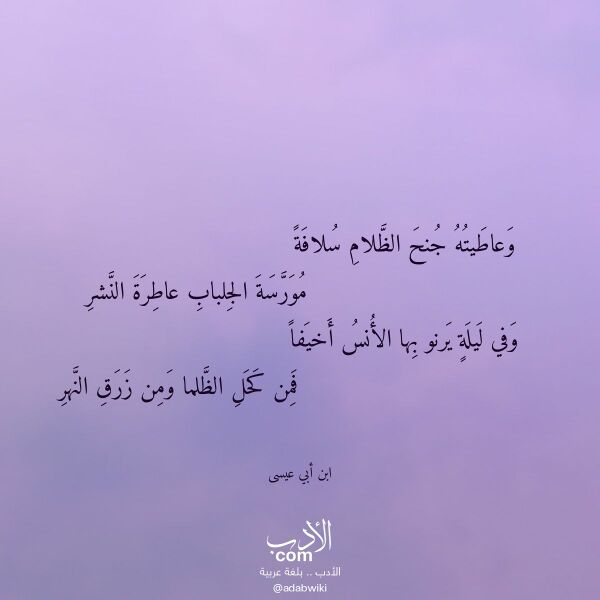 وَعاطَيتُهُ جُنحَ الظَّلامِ سُلافَةً
مُوَرَّسَةَ الجِلبابِ عاطِرَةَ النَّشرِ
وَفي لَيلَةٍ يَرنو بِها الأُنسُ أَخيَفاً
فَمِن كَحَلِ الظَّلما وَمِن زَرَقِ النَّهرِ
ابن أبي عيسى
الأدب
com
الأدب .. بلغة عربية
@adabwiki